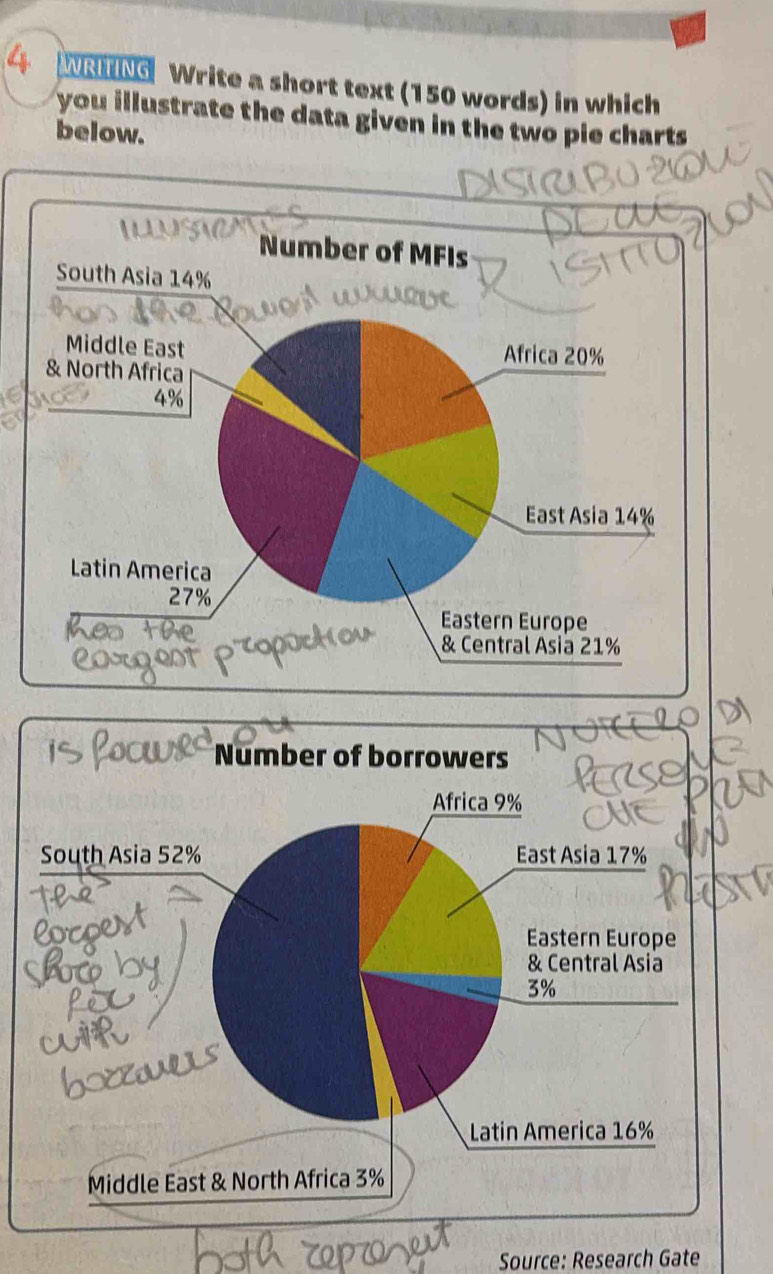 4 WRITING Write a short text (150 words) in which
you illustrate the data given in the two pie charts
below.
DISTRIBUZIONE
DELLE
ISTITUZIONI
ILLUSTRATES
Number of MFIs
South Asia 14%
has the lowest
Middle East
& North Africa
4%
Africa 20%
East Asia 14%
Latin America
27%
has the
largest proportion
Eastern Europe
& Central Asia 21%
is focused on
Number of borrowers
NUMERO DI
PERSONE
CHE
IN
Africa 9%
South Asia 52%
is
the
largest
share by
far
with
borrowers
East Asia 17%
Eastern Europe
& Central Asia
3%
Latin America 16%
Middle East & North Africa 3%
both represent
Source: Research Gate